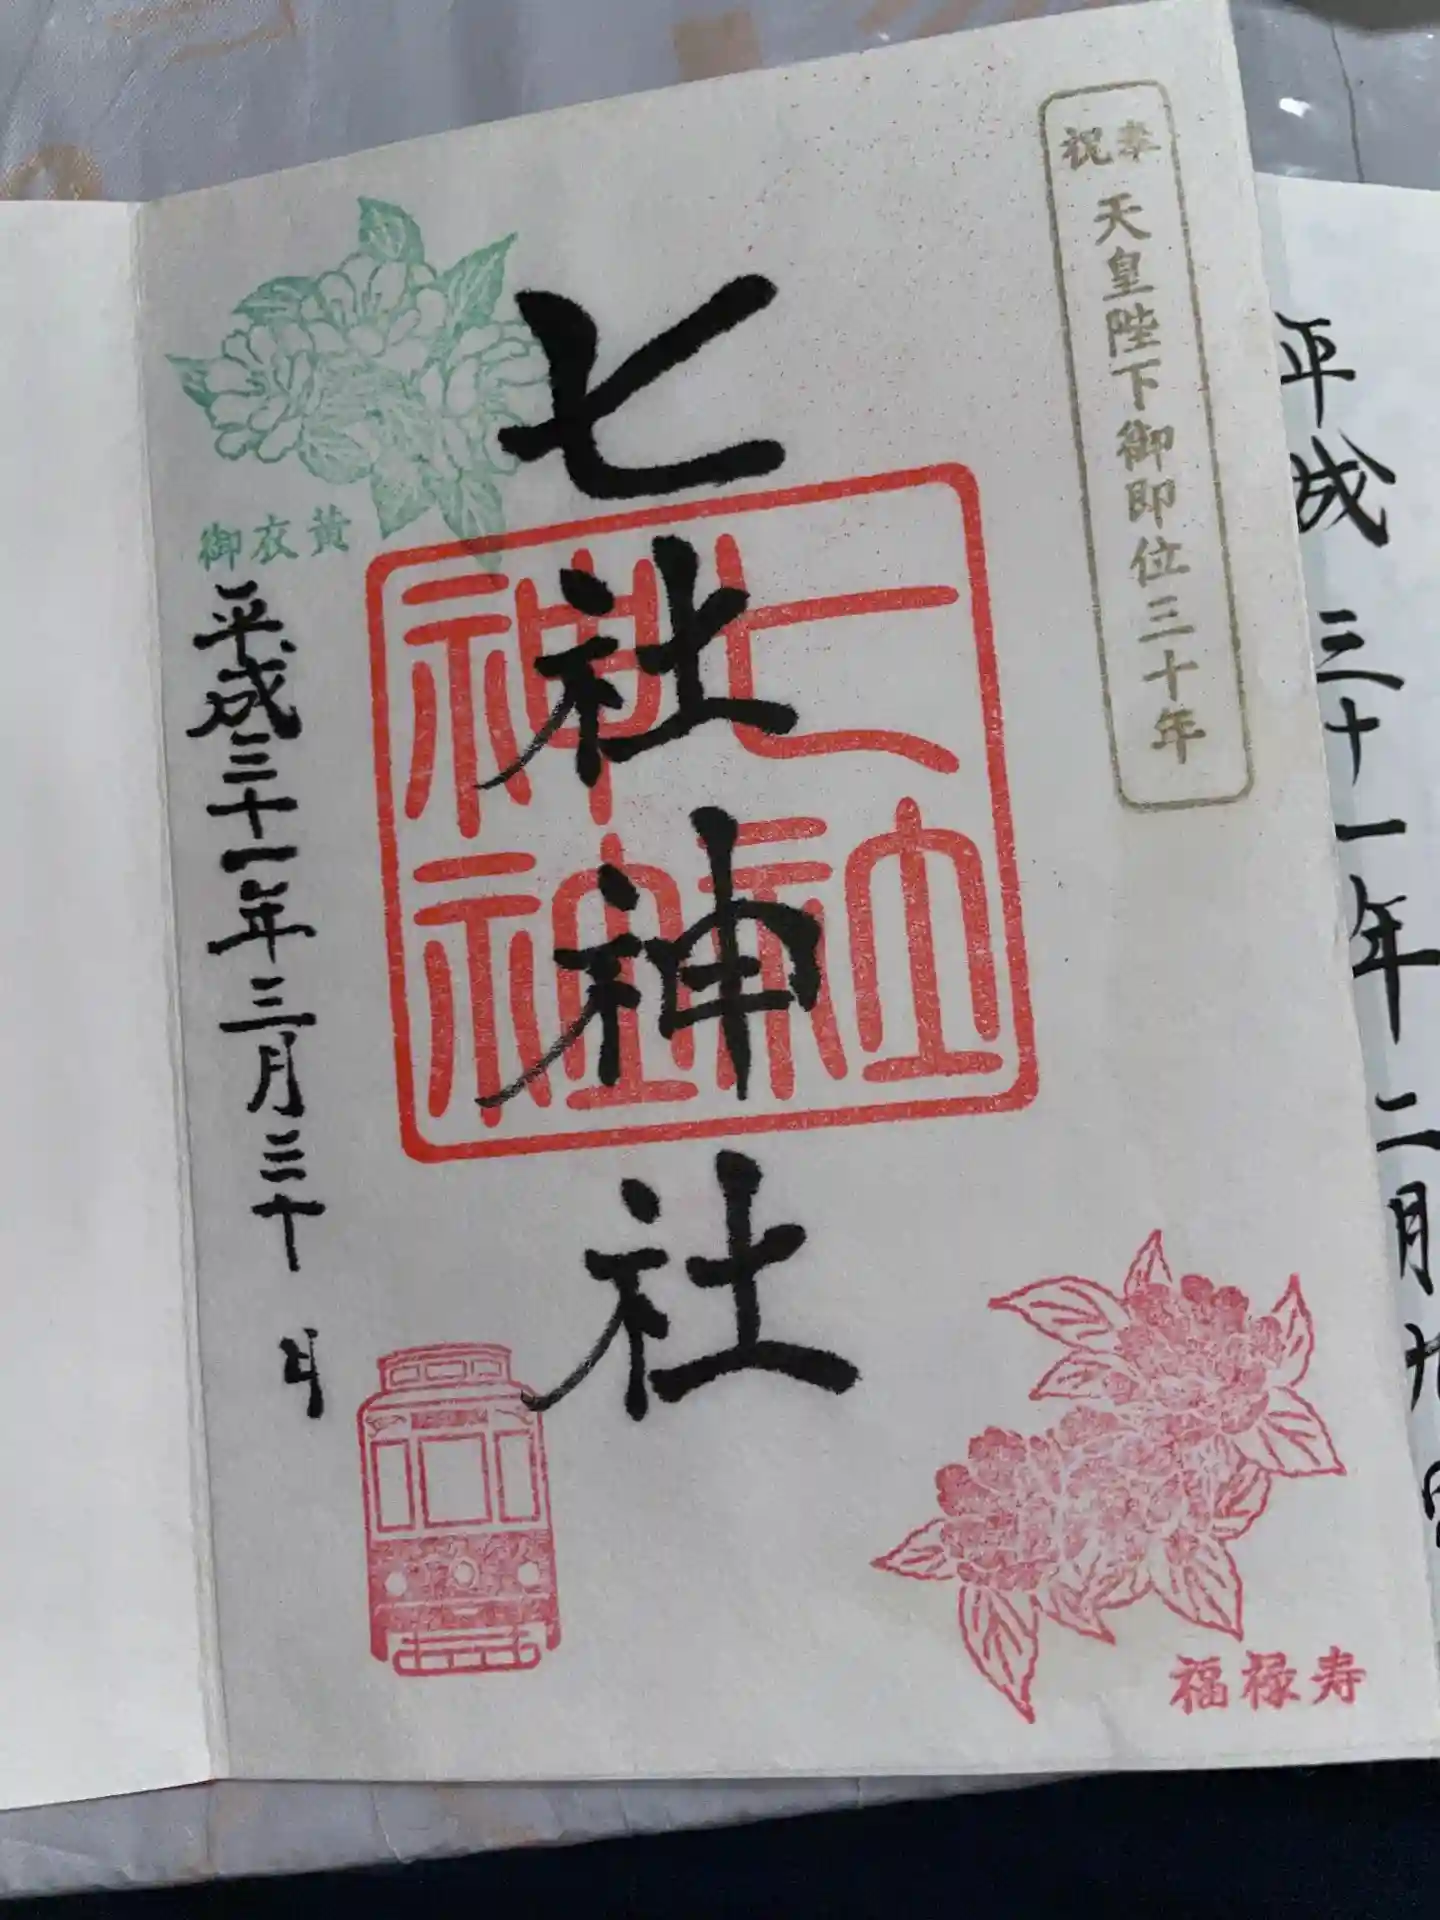 平成三十一年二月九日
奉祝
天皇陛下御即位三十年
七社神社
七社神社
御衣黄
平成三十一年三月三十日
福禄寿